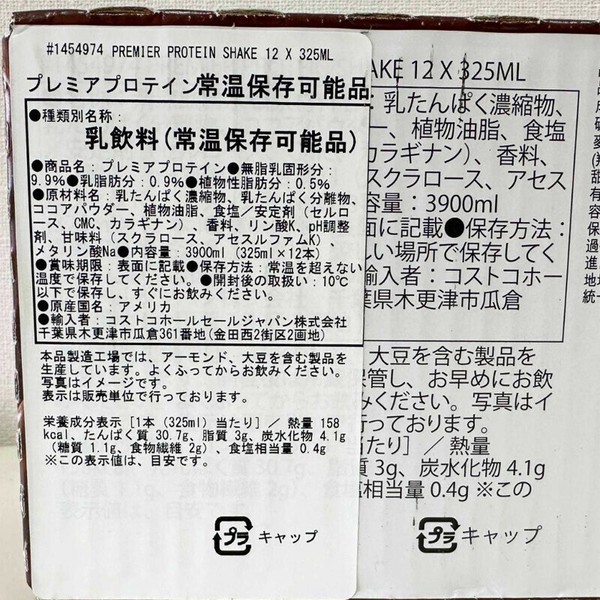 #1454974 PREMIER PROTEIN SHAKE 12 X 325ML
プレミアプロテイン常温保存可能品
●種類別名称:
乳飲料(常温保存可能品)
●商品名:プレミアプロテイン●無脂乳固形分:
9.9%●乳脂肪分:0.9%●植物性脂肪分:0.5%
●原材料名:乳たんぱく濃縮物、乳たんぱく分離物、
ココアパウダー、植物油脂、食塩/安定剤(セルロ
ース、CMC、カラギナン)、香料、リン酸K、pH調整
剤、甘味料(スクラロース、アセスルファムK)
メタリン酸Na●内容量:3900ml(325ml×12本)
●賞味期限:表面に記載●保存方法:常温を超えない
温度で保存してください。●開封後の取扱い:10℃
以下で保存し、すぐにお飲みください。
●原産国名:アメリカ
●輸入者:コストコホールセールジャパン株式会社
千葉県木更津市瓜倉361番地(金田西2街区2画地)
本品製造工場では、アーモンド、大豆を含む製品を
生産しています。よくふってからお飲みください。
写真はイメージです。
表示は販売単位で行っております。
栄養成分表示[1本(325ml)当たり]/熱量 158
kcal、たんぱく質 30.7g、脂質 3g、炭水化物 4.1g
(糖質 1.1g、食物繊維 2g)、食塩相当量 0.4g
※この表示値は、目安です。
プラ キャップ
AKE 12 X 325ML
乳たんぱく濃縮物、
ー、植物油脂、食塩
カラギナン)、香料、
スクラロース、アセス
容量:3900ml
面に記載●保存方法:
しい場所で保存してく
輸入者:コストコホー
葉県木更津市瓜倉
大豆を含む製品を
保管し、お早めにお飲
みください。写真はイ
行っております。
当たり]/熱量
質 3g、炭水化物 4.1g
塩相当量 0.4g ※この
プラ キャップ